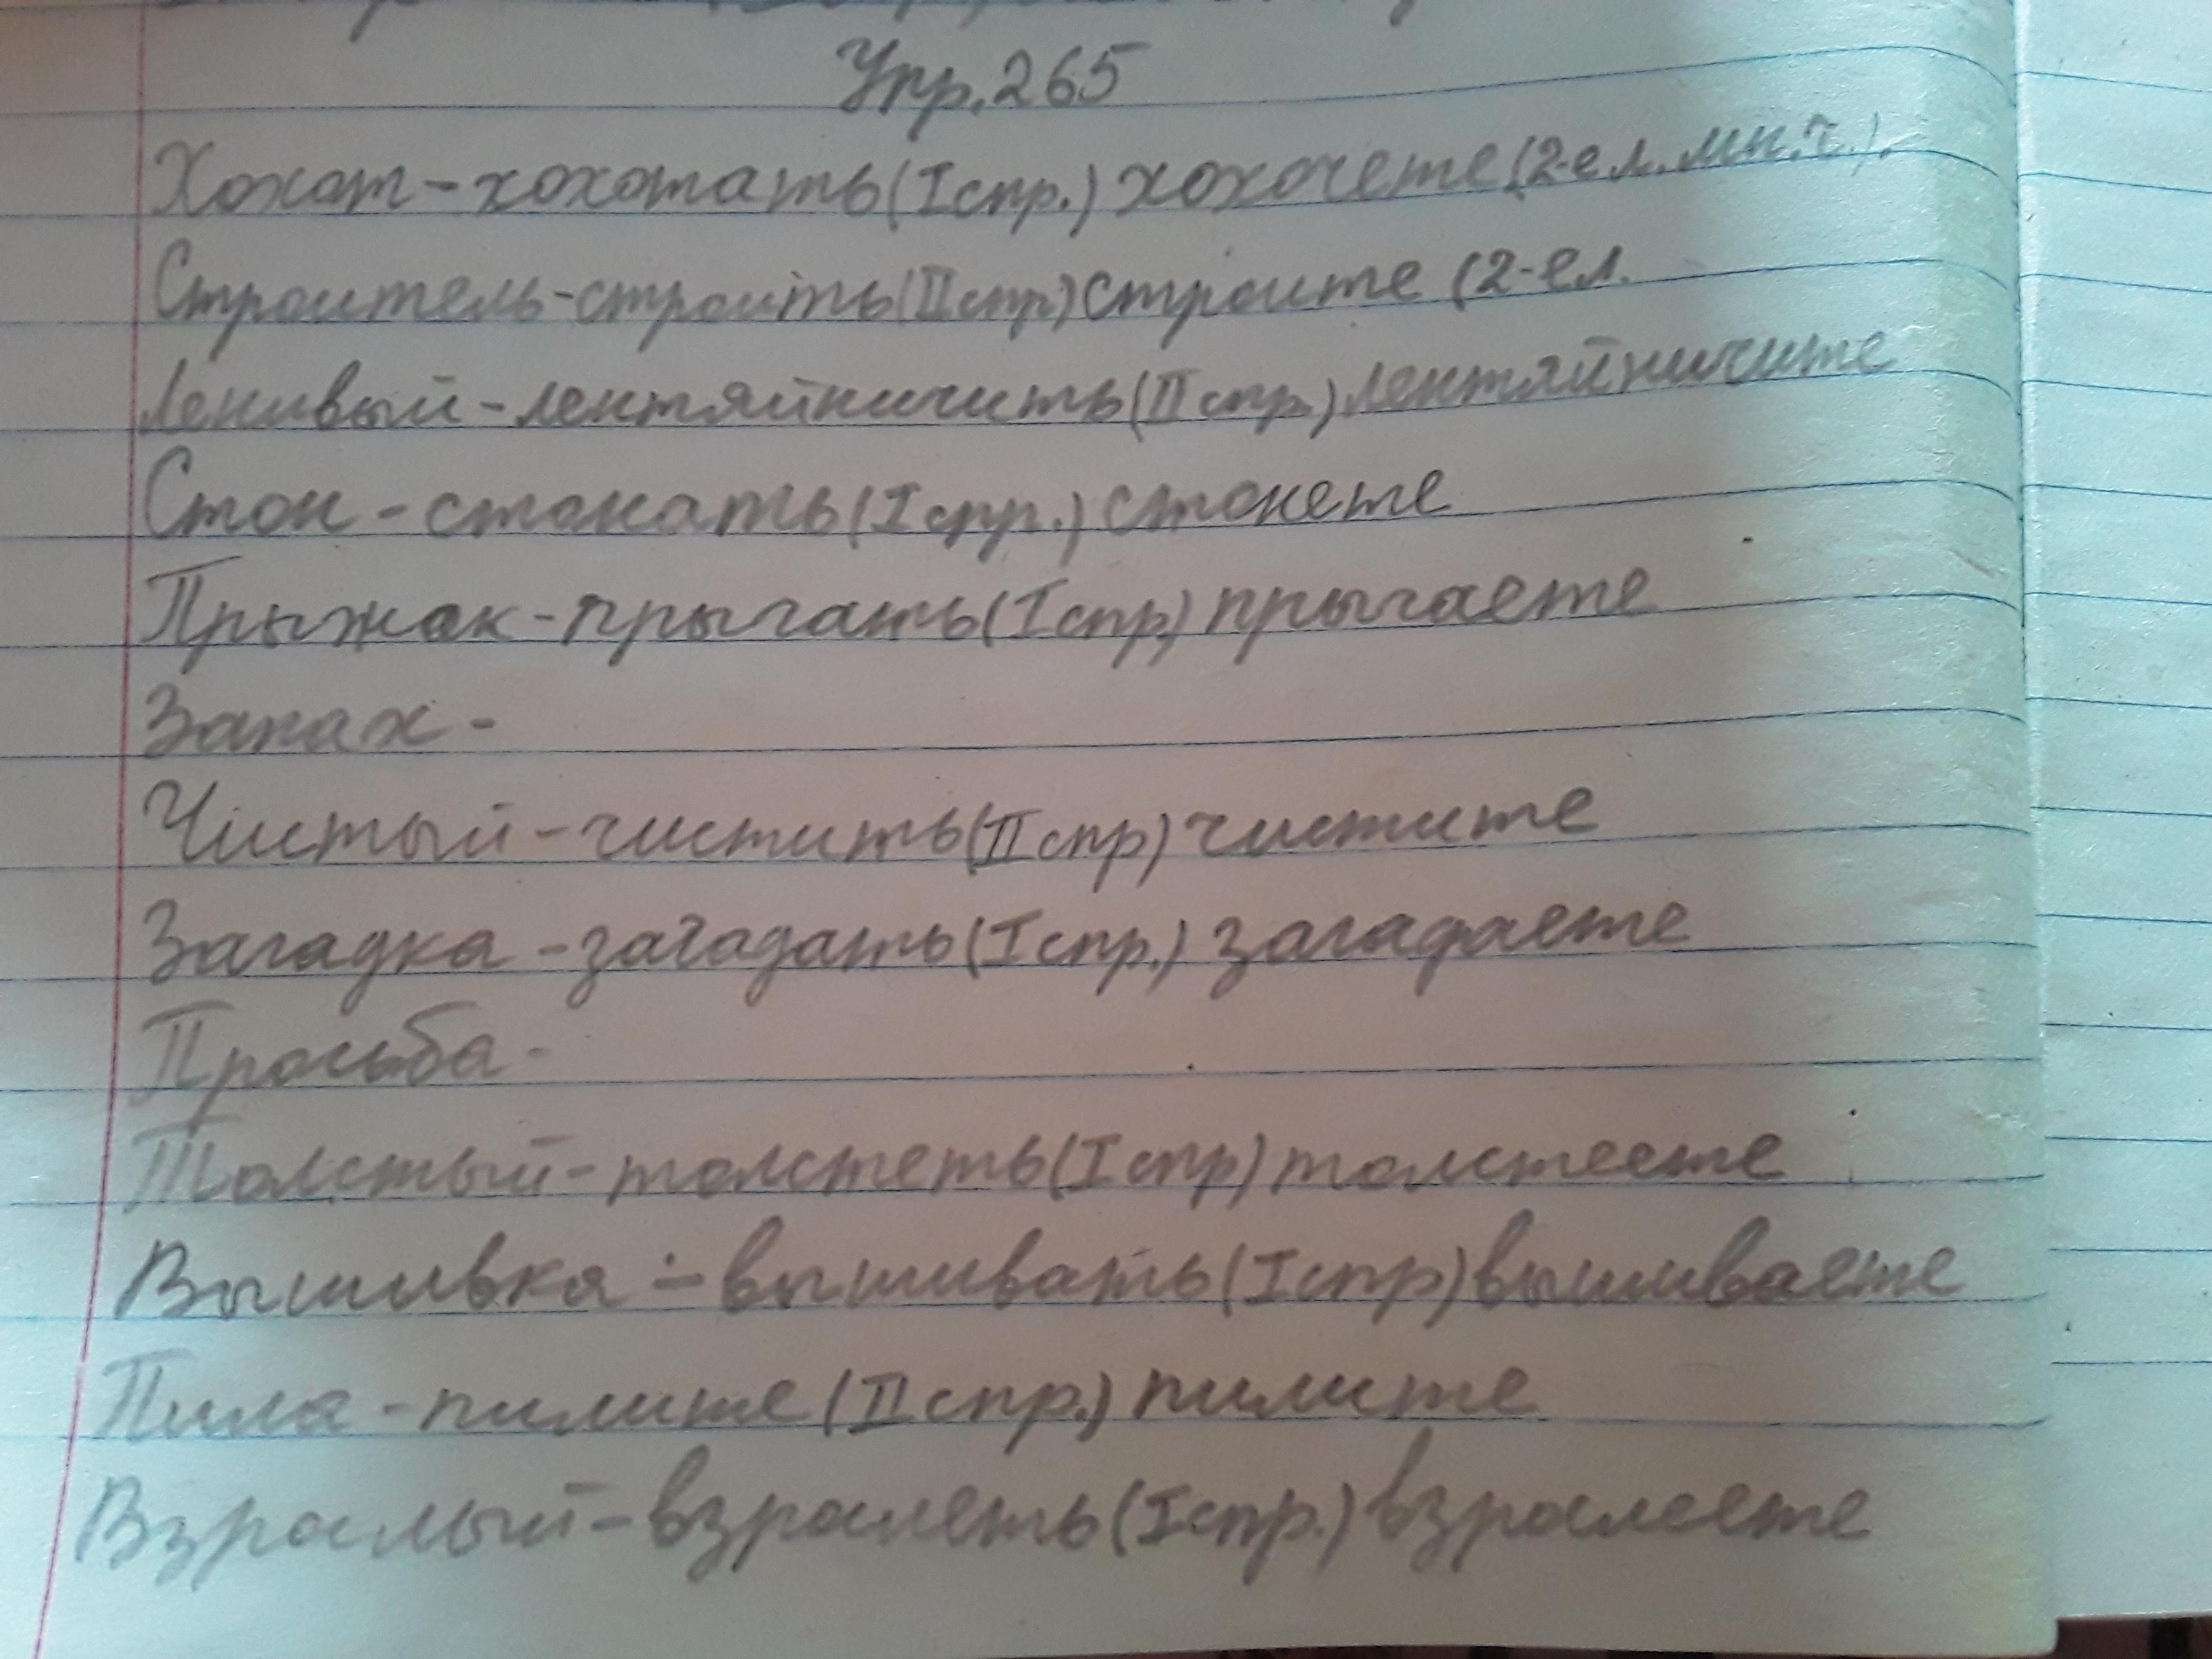 Упр. 265
Хохот - хохотать (I спр.) хохочете (2-е л. мн. ч.).
Строитель - строить (II спр) строите (2-е л.
Ленивый - лентяйничить (II спр.) лентяйничите
Стон - стонать (I спр.) стонете
Прыжок - прыгать (I спр) прыгаете
Запах -
Чистый - чистить (II спр) чистите
Загадка - загадать (I спр.) загадаете
Просьба -
Толстый - толстеть (I спр) толстеете
Вышивка - вышивать (I спр) вышиваете
Пила - пилите (II спр.) пилите
Взрослый - взрослеть (I спр.) взрослеете